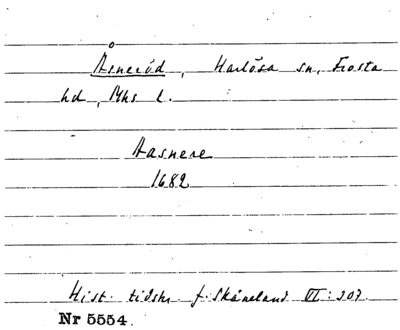 Åsneröd, Harlösa sn, Frosta
hd, Mhs l.
Aasnere
1682
Hist. tidskr. f. Skåneland VI: 207
Nr 5554